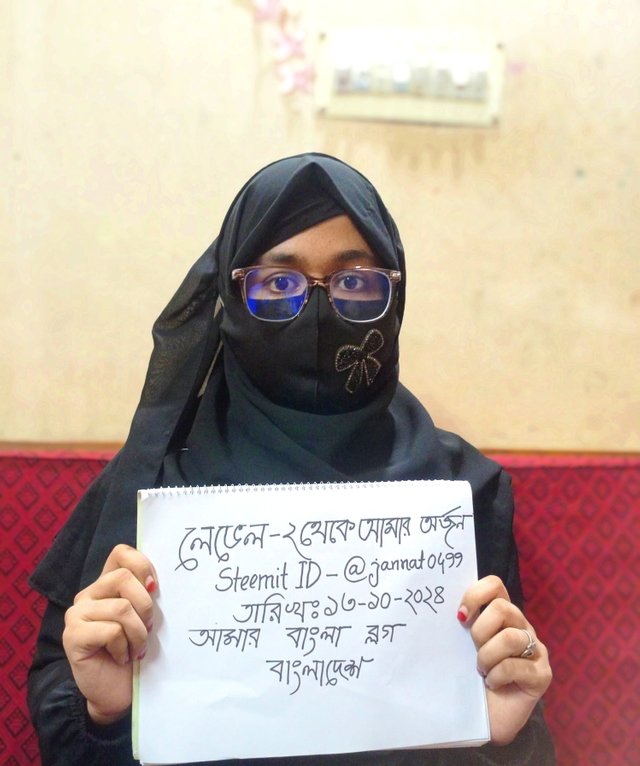 লেভেল-২ থেকে আমার অর্জন
Steemit ID - @jannat0499
তারিখঃ ১৩-১০-২০২৪
আমার বাংলা ব্লগ
বাংলাদেশ